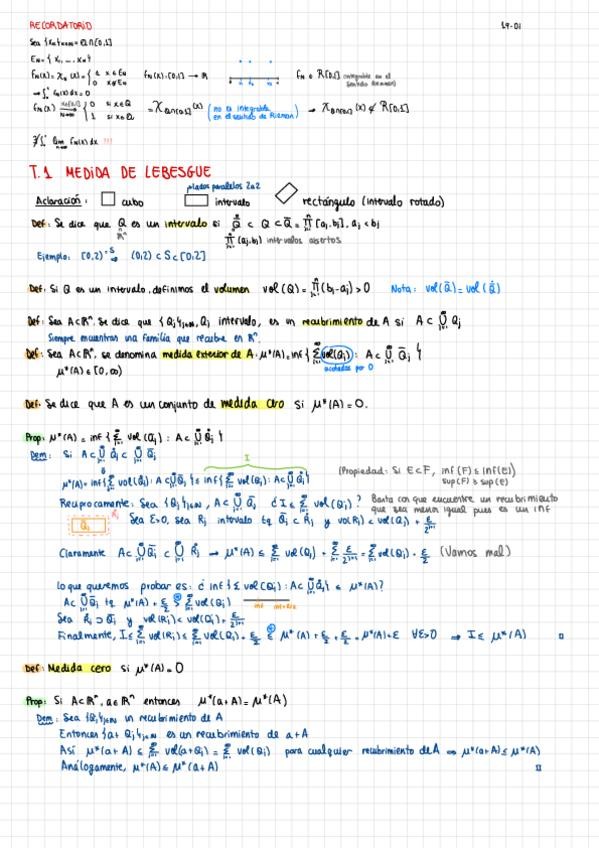 RECORDATORIO 19-01
Sea {xn}n∈N = Q∩[0,1]
EN = {x1, ..., xN}
fN(x) = χEN(x) = { 1 x∈EN fN(x): [0,1] → R fN ∈ R[0,1] (integrable en el sentido Rieman)
0 x∉EN
→ ∫₀¹ fN(x)dx = 0
fN(x) → { 0 si x∉Q = χQ∩[0,1](x) (no es integrable en el sentido de Rieman) → χQ∩[0,1](x) ∉ R[0,1]
1 si x∈Q
∄ ∫₀¹ lim fN(x) dx !!!
T.1 MEDIDA DE LEBESGUE
lados paralelos 2a2
Aclaración: cubo intervalo rectángulo (intervalo rotado)
Def: Se dice que Q es un intervalo si Q̊ ⊂ Q ⊂ Q̄ = ∏ [aj, bj], aj < bj
∏ (aj, bj) intervalos abiertos
Ejemplo: [0,2) = S (0,2) ⊂ S ⊂ [0,2]
Def: Si Q es un intervalo, definimos el volumen vol(Q) = ∏(bj-aj) > 0 Nota: vol(Q̄) = vol(Q̊)
Def: Sea A⊂Rⁿ. Se dice que {Qj}j∈N, Qj intervalo, es un recubrimiento de A si A ⊂ ∪ Qj
Siempre encuentras una familia que recubre en Rⁿ.
Def: Sea A⊂Rⁿ, se denomina medida exterior de A: μ*(A) = inf { Σ vol(Qj) : A ⊂ ∪ Q̄j }
acotadas por 0
μ*(A) ∈ [0,∞)
Def: Se dice que A es un conjunto de medida cero si μ*(A) = 0.
Prop: μ*(A) = inf { Σ vol(Qj) : A ⊂ ∪ Q̊j }
Dem: Si A ⊂ ∪ Q̊j ⊂ ∪ Q̄j
I
μ*(A) = inf{ Σ vol(Qj): A⊂∪Q̄j } ≤ inf{ Σ vol(Qj): A⊂∪Q̊j } (Propiedad: Si E⊂F, inf(F) ≤ inf(E)
sup(F) ≥ sup(E)
Recíprocamente: Sea {Qj}j∈N, A⊂∪ Q̄j ¿I ≤ Σ vol(Qj)? Basta con que encuentre un recubrimiento que sea menor igual pues es un inf
Qj Rj Sea ε>0, sea Rj intervalo tq Q̄j ⊂ R̊j y vol(Rj) < vol(Qj) + ε/2^(j+1)
Claramente A⊂∪ Q̄j ⊂ ∪ R̊j → μ*(A) ≤ Σ vol(Qj) + Σ ε/2^(j+1) = Σ vol(Qj) + ε/2 (Vamos mal)
Lo que queremos probar es: ¿ inf{ Σ vol(Qj): A⊂∪Q̊j } ≤ μ*(A)?
A⊂∪Q̄j tq μ*(A) + ε/2 > Σ vol(Qj) inf inf+ε/2
Sea Rj ⊃ Q̄j y vol(Rj) < vol(Qj) + ε/2^(j+1)
Finalmente, I ≤ Σ vol(Rj) ≤ Σ vol(Qj) + ε/2 ≤ μ*(A) + ε/2 + ε/2 = μ*(A) + ε ∀ε>0 ⇒ I ≤ μ*(A)
Def: Medida cero si μ*(A) = 0
Prop: Si A⊂Rⁿ, a∈Rⁿ entonces μ*(a+A) = μ*(A)
Dem: Sea {Qj}j∈N un recubrimiento de A
Entonces {a+Qj}j∈N es un recubrimiento de a+A
Así μ*(a+A) ≤ Σ vol(a+Qj) = Σ vol(Qj) para cualquier recubrimiento de A ⇒ μ*(a+A) ≤ μ*(A)
Análogamente, μ*(A) ≤ μ*(a+A)